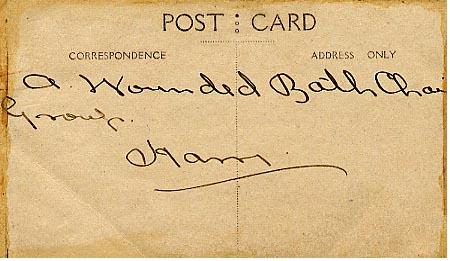 POST CARD
CORRESPONDENCE ADDRESS ONLY
A Wounded Bath Chai
Group.
Harry